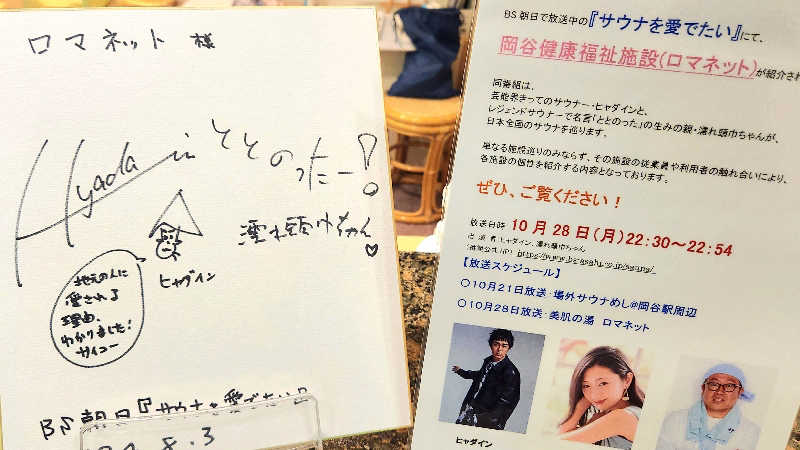 ロマネット 様
Hyadain
ととのったー!
濡れ頭巾ちゃん♡
ヒャダイン
地元の人に
愛される
理由、
わかりました!
サイコー
BS朝日『サウナを愛でたい』
8.3
BS朝日で放送中の『サウナを愛でたい』にて、
岡谷健康福祉施設(ロマネット)が紹介され
同番組は、
芸能界きってのサウナー・ヒャダインと、
レジェンドサウナーで名言「ととのった」の生みの親・濡れ頭巾ちゃんが、
日本全国のサウナを巡ります。
単なる施設巡りのみならず、その施設の従業員や利用者の触れ合いにより、
各施設の個性を紹介する内容となっております。
ぜひ、ご覧ください!
放送日時 10月28日(月)22:30～22:54
出演者 ヒャダイン、濡れ頭巾ちゃん
【放送スケジュール】
○10月21日放送:場外サウナめし@岡谷駅周辺
○10月28日放送:美肌の湯 ロマネット
ヒャダイン